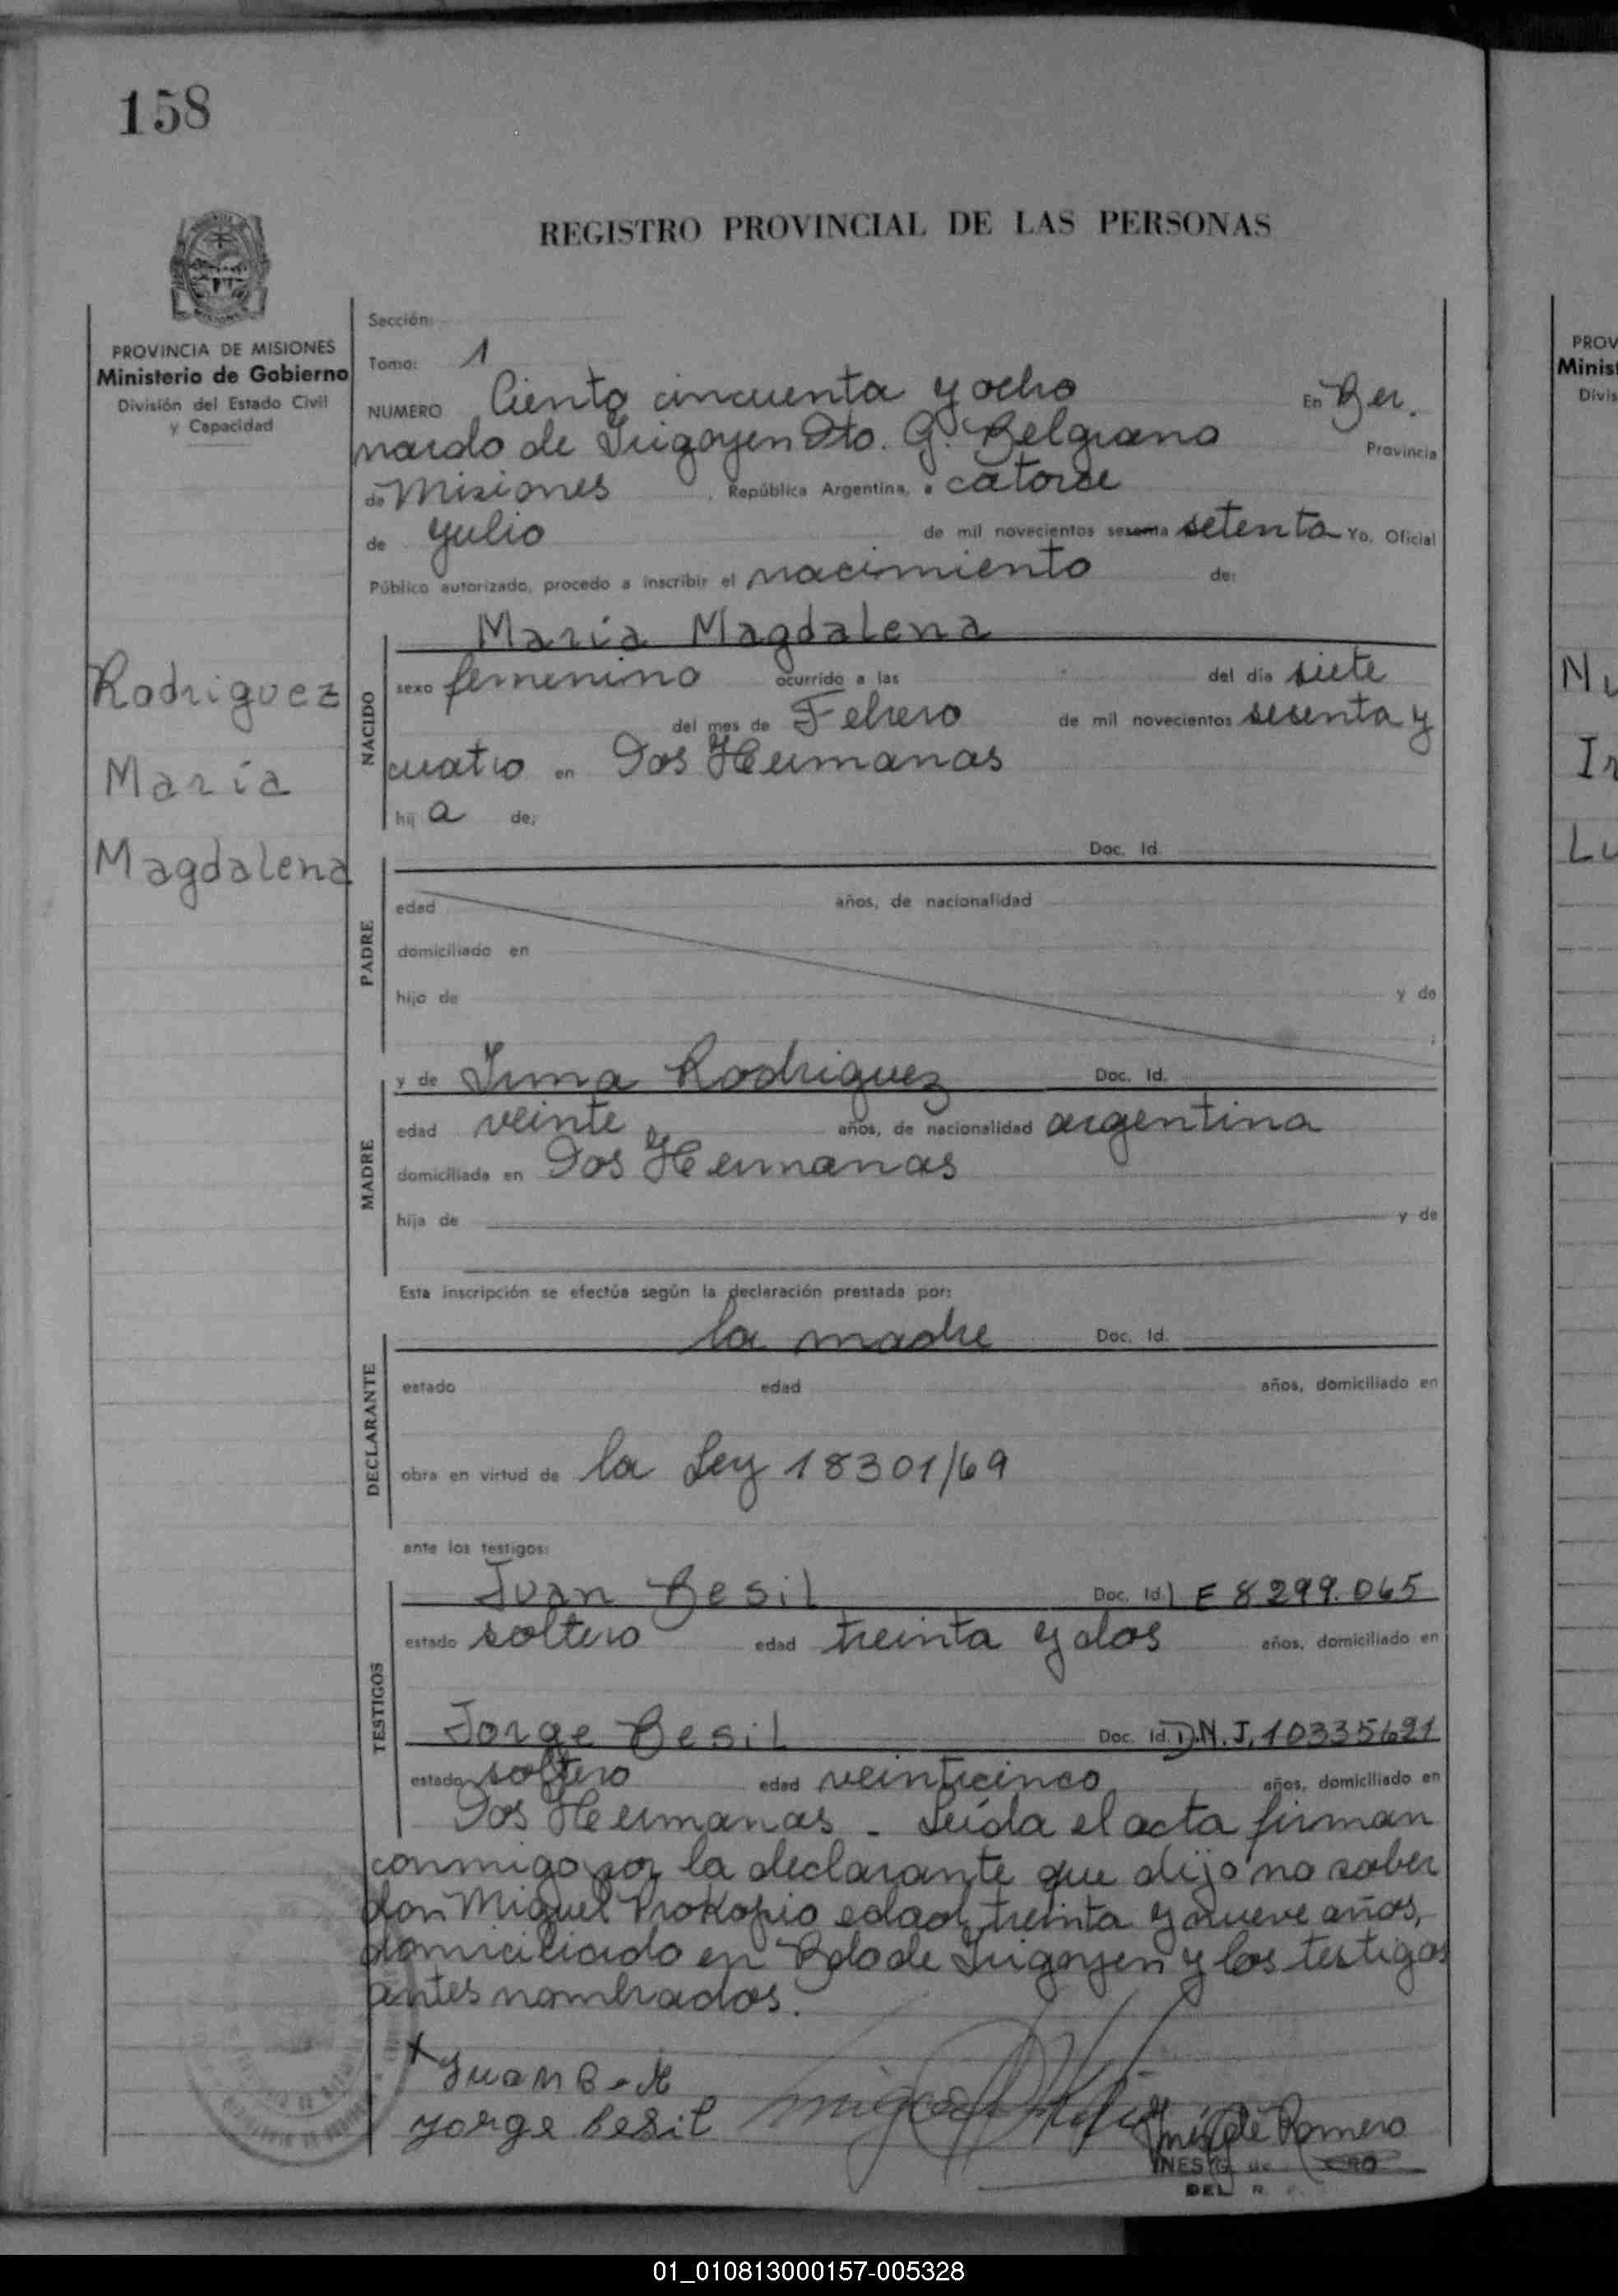 158
REGISTRO PROVINCIAL DE LAS PERSONAS
PROVINCIA DE MISIONES
Ministerio de Gobierno
División del Estado Civil
y Capacidad
Sección:
Tomo: 1
NUMERO Ciento cincuenta y ocho En Ber.
nardo de Irigoyen Dto. G. Belgrano Provincia
de Misiones , República Argentina, a catorce
de Julio de mil novecientos sesenta setenta Yo, Oficial
Público autorizado, procedo a inscribir el nacimiento de:
María Magdalena
Rodriguez
María
Magdalena
NACIDO
sexo femenino ocurrido a las del día siete
del mes de Febrero de mil novecientos sesenta y
cuatro en Dos Hermanas
hij a de:
Doc. Id.
PADRE
edad años, de nacionalidad
domiciliado en
hijo de y de
;
MADRE
y de Irma Rodriguez Doc. Id.
edad veinte años, de nacionalidad argentina
domiciliada en Dos Hermanas
hija de y de
Esta inscripción se efectúa según la declaración prestada por:
DECLARANTE
la madre Doc. Id.
estado edad años, domiciliado en
obra en virtud de la Ley 18301/69
ante los testigos:
TESTIGOS
Juan Besil Doc. Id. L E 8299.065
estado soltero edad treinta y dos años, domiciliado en
Jorge Besil Doc. Id. D.N.I. 10335621
estado soltero edad veinticinco años, domiciliado en
Dos Hermanas - Leída el acta firman
conmigo por la declarante que dijo no saber
don Miguel Prokopio edad treinta y nueve años,
domiciliado en Bdo de Irigoyen y los testigos
antes nombrados.
Juan
Jorge Besil
Inés G de Romero
INES G. de
DEL R. P.
PROV
Minis
Divis
Nu
Ir
Lu
01_010813000157-005328